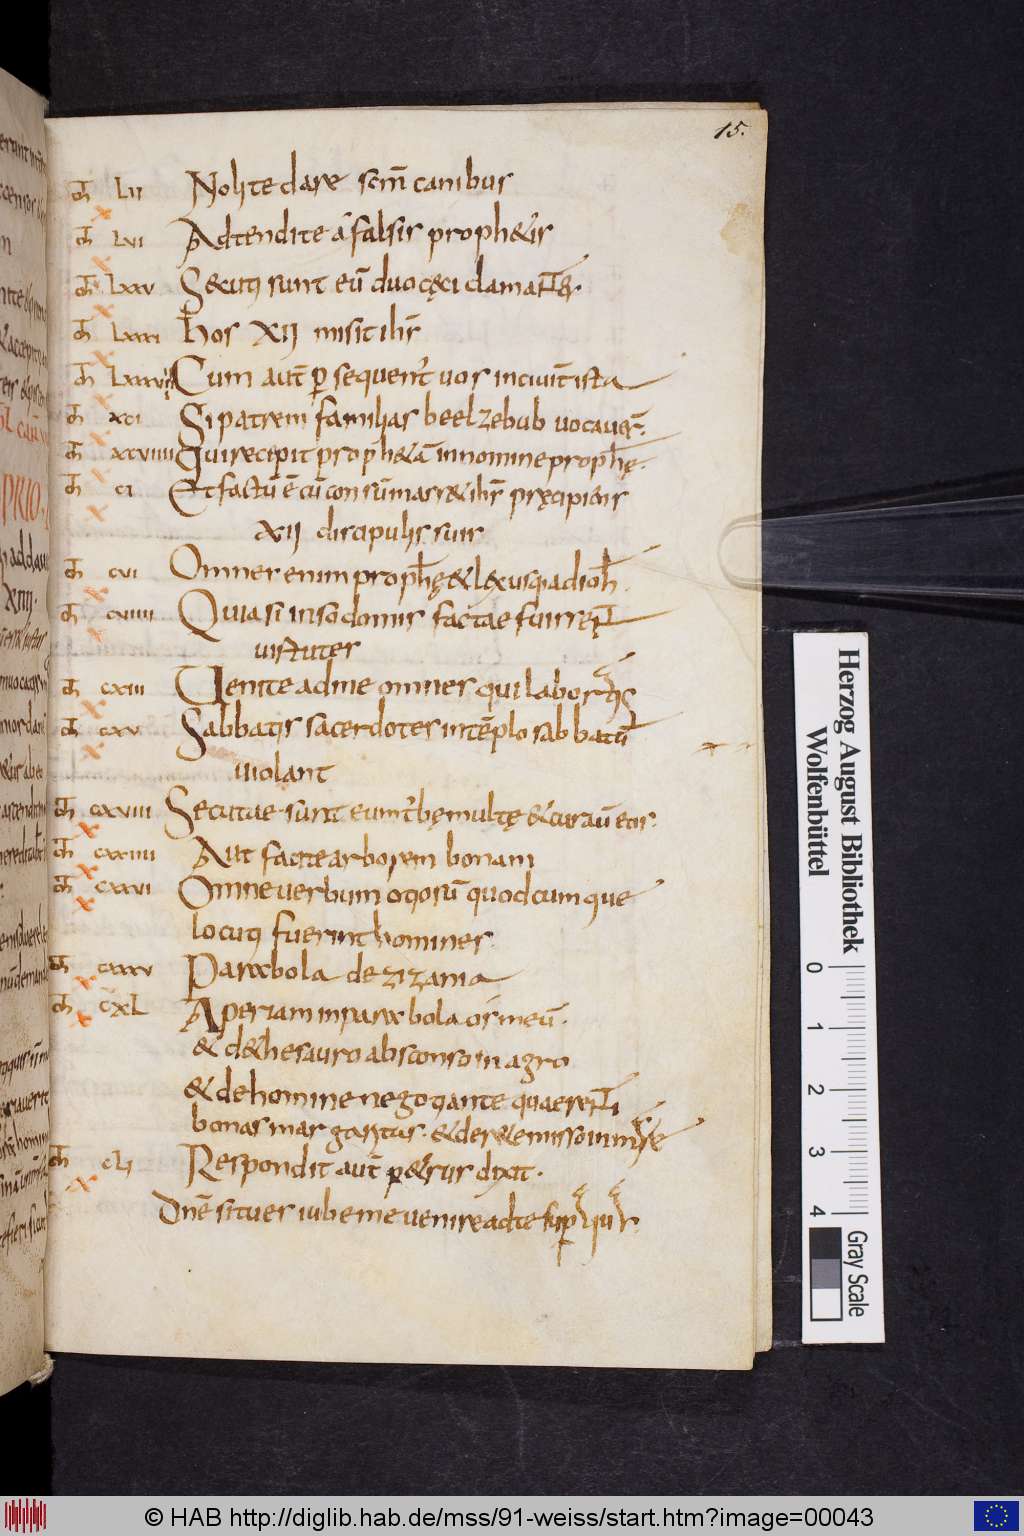 15.
cħ LII Nolite dare scm̄ canibus
cħ LVI Adtendite a falsis prophetis
cħ LXXV Secuti sunt eū duo cęci clamantes
cħ LXXXI hos XII misit ihs̄
cħ Cum aut̄ persequent̄ vos in civit̄ ista
cħ XCI Si patrem familias beelzebub vocaver̄.
cħ XCVIIII Qui recipit prophetā in nomine prophę.
cħ CI Et factū ē cū consūmasset ihs̄ pręcipiens
XII discipulis suis
cħ CVI Omnes enim prophę & lex usq; ad ioħ.
cħ CVIIII Quia si in sodomis factae fuissent
virtutes
cħ CXIII Venite ad me omnes qui laboratis
cħ CXV Sabbatis sacerdotes in tēplo sabbatū
violant
cħ CXXVIII Secutae sunt eum turbę multę & curav̄ eos.
cħ CXXIIII Aut facite arborem bonam
cħ CXXVI Omne verbum otiosū quodcumque
locuti fuerint homines.
cħ CXXXV Parabola de zizania
cħ CXL Aperiam in parabola os meū.
& de thesauro absconso in agro
& de homine negotiante quaerenti
bonas margaritas. & de rete misso in mare
cħ CLI Respondit aut̄ petrus dixit.
Dn̄e si tu es iube me venire ad te sup aquas.
Herzog August Bibliothek
Wolfenbüttel
0 1 2 3 4
Gray Scale
© HAB http://diglib.hab.de/mss/91-weiss/start.htm?image=00043